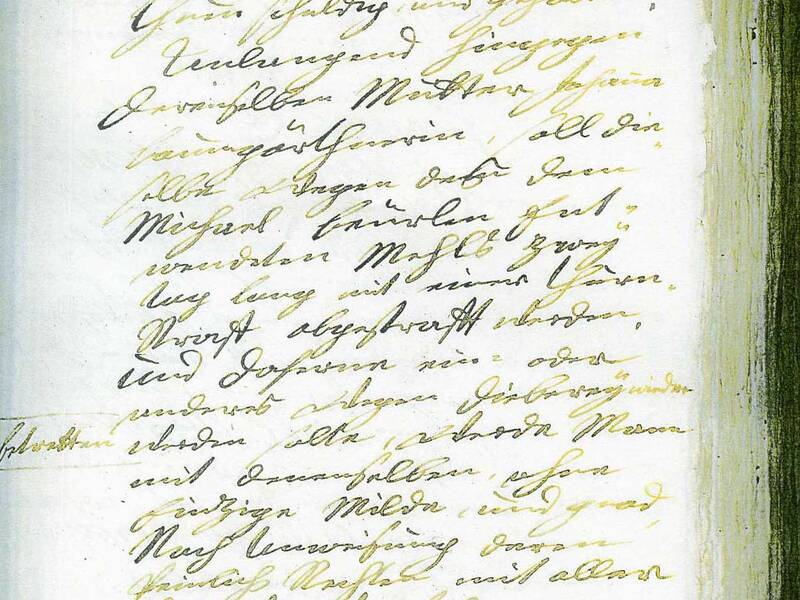 thun schuldig, und gehal-
Anlangend hingegen
derenselben Mutter Johanna
baumgärthnerin, soll die-
selbe wegen deß dem
Michael beürlen Ent-
wendeten Mehls zwey
tag lang mit einer thurn-
Straff abgestrafft werden,
und daferne ein- oder
anderes wegen dieberey wieder
betretten
werden solte, werde Mann
mit denenselben, ohne
Eintzige Milde und gnad,
Nach Anweisung deren
peinlich Rechten mit aller